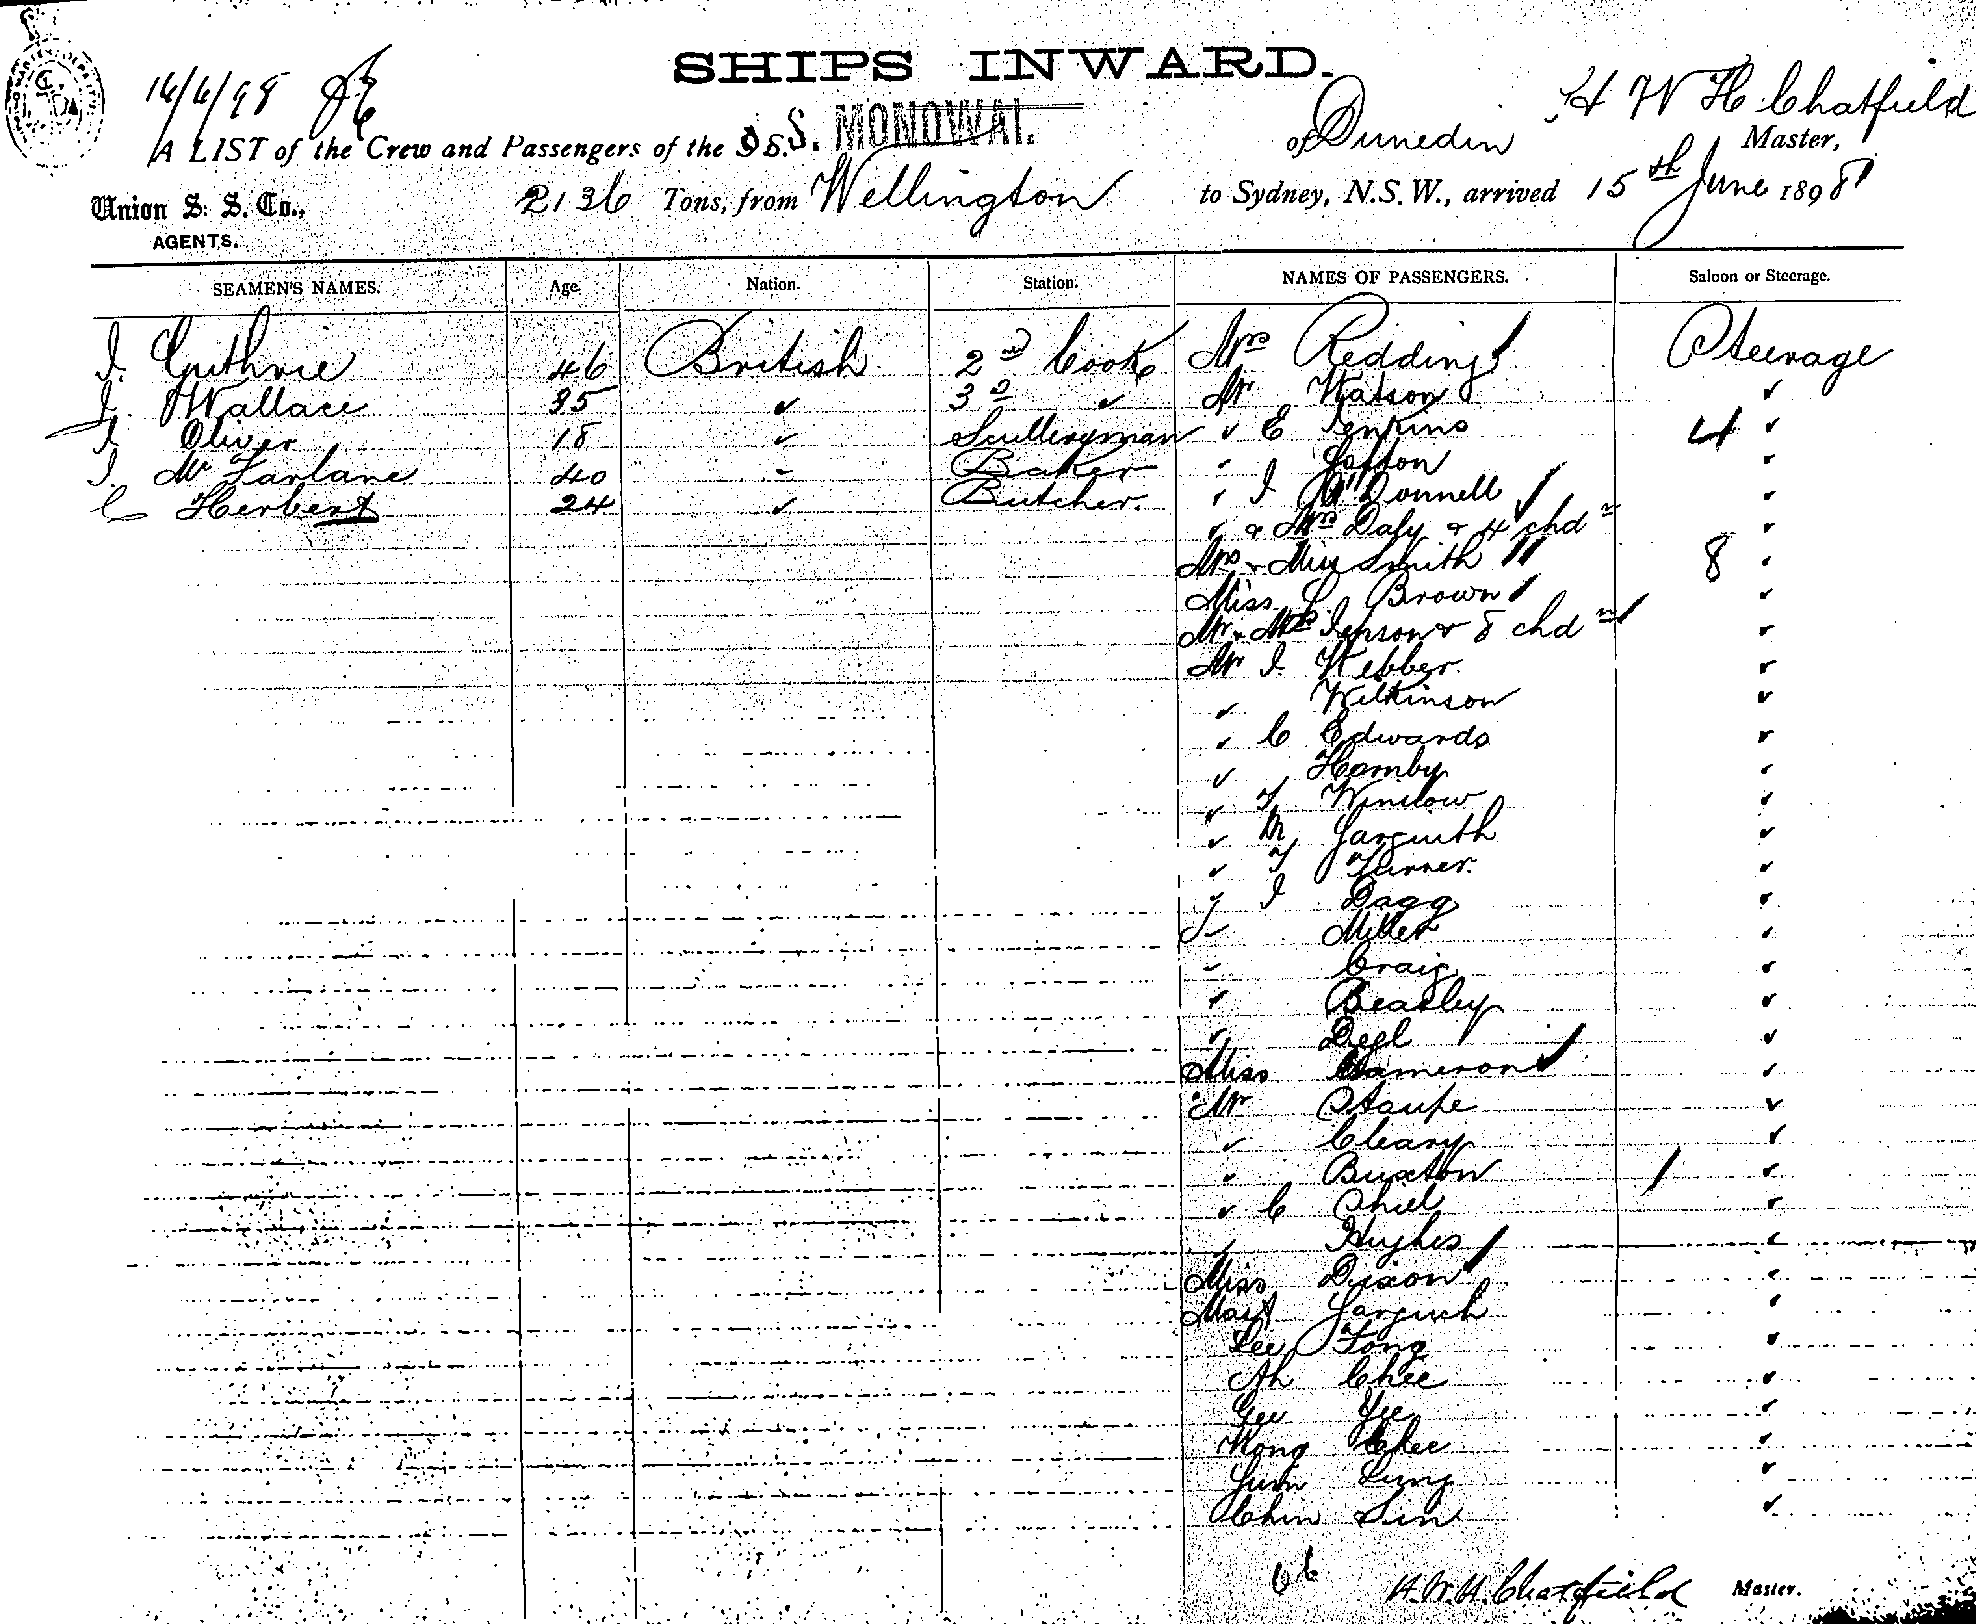 SHIPS INWARD.
16/6/98
H W H Chatfield
A LIST of the Crew and Passengers of the S.S. MONOWAI. of Dunedin Master,
Union S. S. Co., 2136 Tons, from Wellington to Sydney, N.S.W., arrived 15th June 1898
AGENTS.
SEAMEN'S NAMES. Age. Nation. Station. NAMES OF PASSENGERS. Saloon or Steerage.
J. Guthrie 46 British 2nd Cook Mrs Redding Steerage
J. Wallace 35 " 3d " Mr Watson "
J Oliver 18 " Sculleryman " E Jenkins 4 "
J. McFarlane 40 " Baker " "
C Herbert 24 " Butcher. " J O'Donnell "
" & Mrs Daly & 4 chdn "
Mrs & Miss Smith 8 "
Miss Brown "
Mr & Mrs & 8 chdn "
Mr J. Webber "
" Wilkinson "
" C Edwards "
" Hornby "
" T Winslow "
" M "
" T Turner. "
" J Dagg "
" Miller "
" Craig "
" Beasley "
" "
Miss Cameron "
Mr "
" Cleary "
" Buxton "
" C "
" Hughes "
Miss Dixon "
Mast "
Lee Fong "
Ah Chee "
Gee Yee "
Wong Chee "
Lung "
Chin Sin "
66
H.W.H. Chatfield Master.